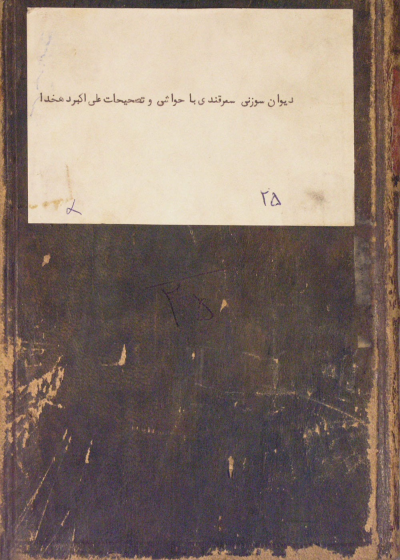 دیوان سوزنی سمرقندی با حواشی و تصحیحات علی اکبر دهخدا
۲۵